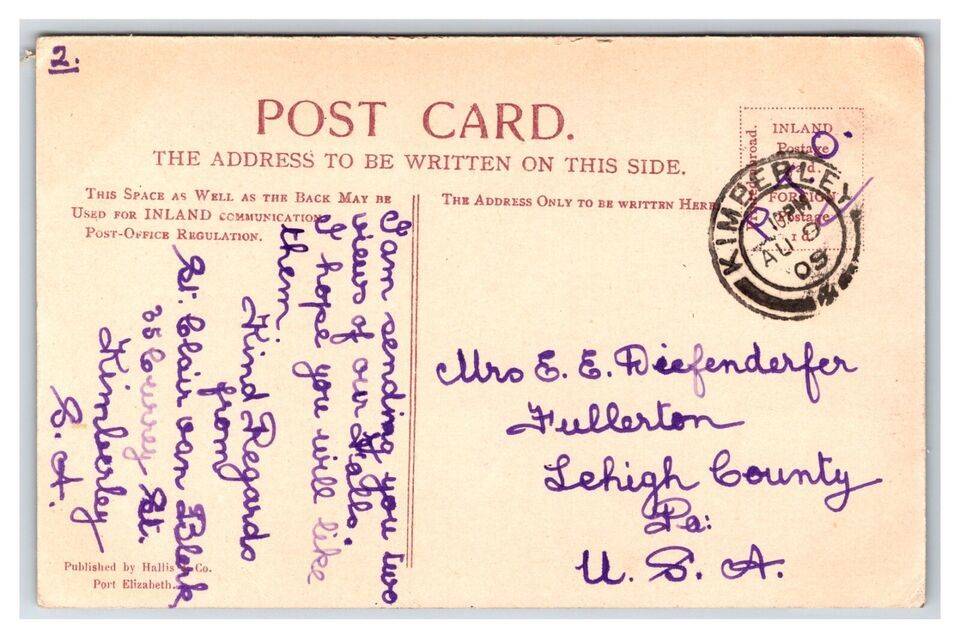 2.
POST CARD.
THE ADDRESS TO BE WRITTEN ON THIS SIDE.
THIS SPACE AS WELL AS THE BACK MAY BE
USED FOR INLAND COMMUNICATION
POST-OFFICE REGULATION.
I am sending you two
views of our Falls.
I hope you will like
them.
Kind Regards
from
St. Clair van Blerk
35 Currey St.
Kimberley
S. A.
Published by Hallis & Co.
Port Elizabeth.
THE ADDRESS ONLY TO BE WRITTEN HERE
INLAND
Postage
FOREIGN
Postage
1d.
P. O.
KIMBERLEY
PM
AU
09
Mrs E. E. Diefenderfer
Fullerton
Lehigh County
Pa:
U. S. A.